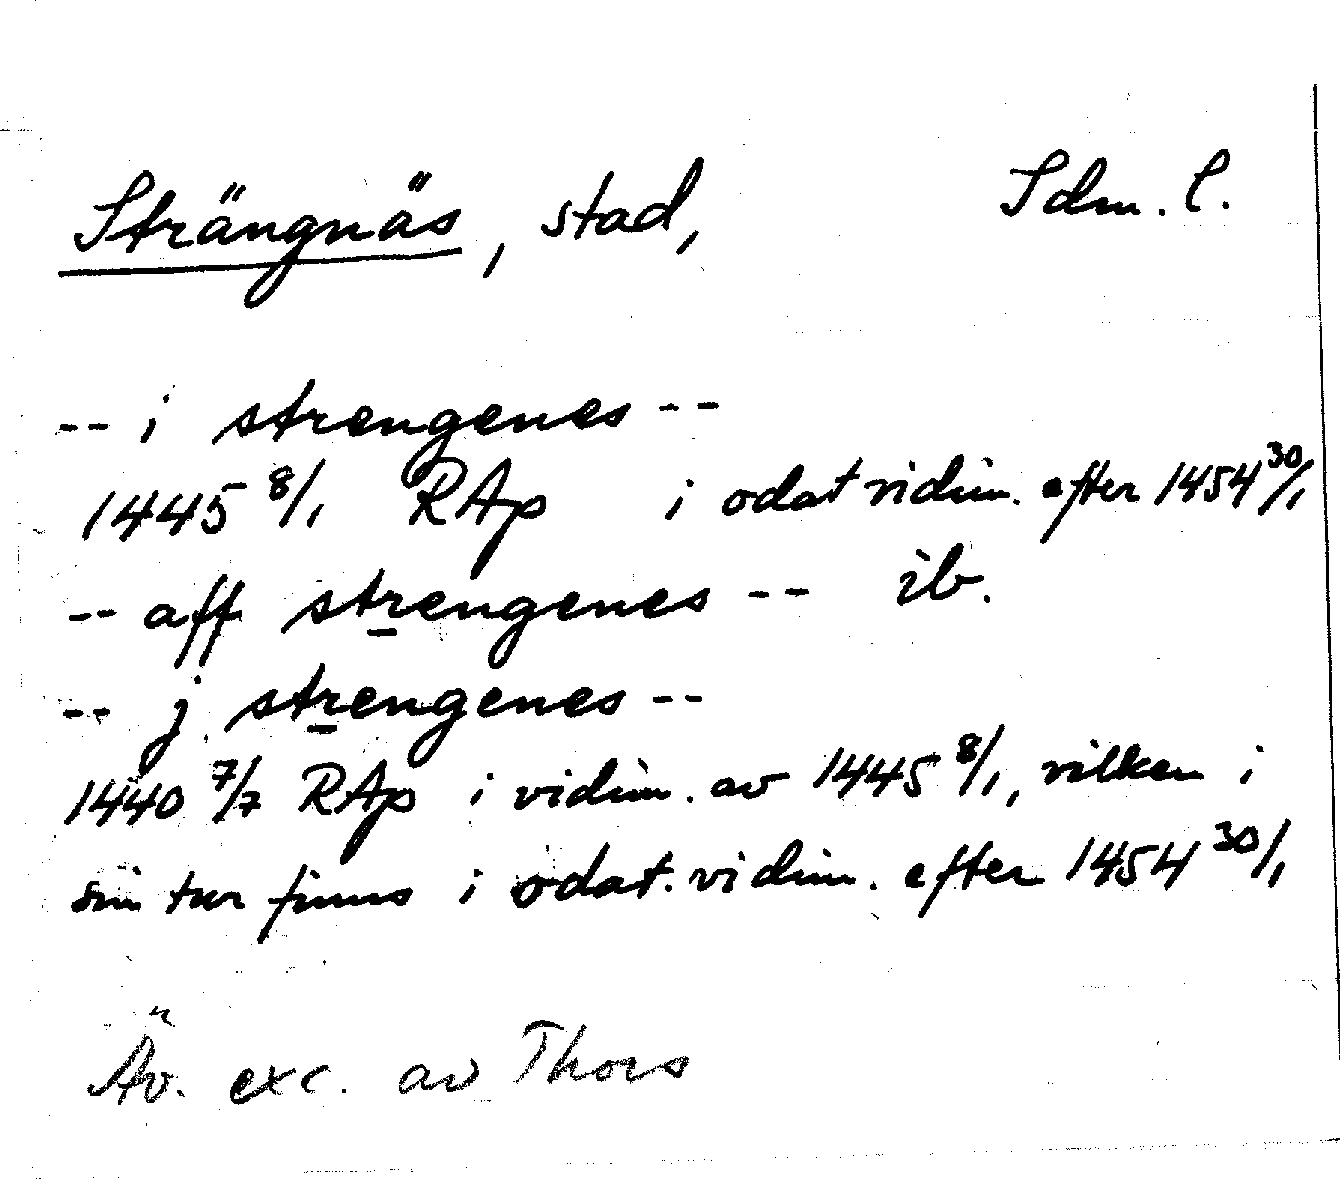 Strängnäs, stad, Sdm. l.
-- i strengenes --
1445 8/1 RAp i odat vidim. efter 1454 30/1
-- aff strengenes -- ib.
-- j strengenes --
1440 7/7 RAp i vidim. av 1445 8/1, vilken i
sin tur finns i odat. vidim. efter 1454 30/1
Äv. exc. av Thors